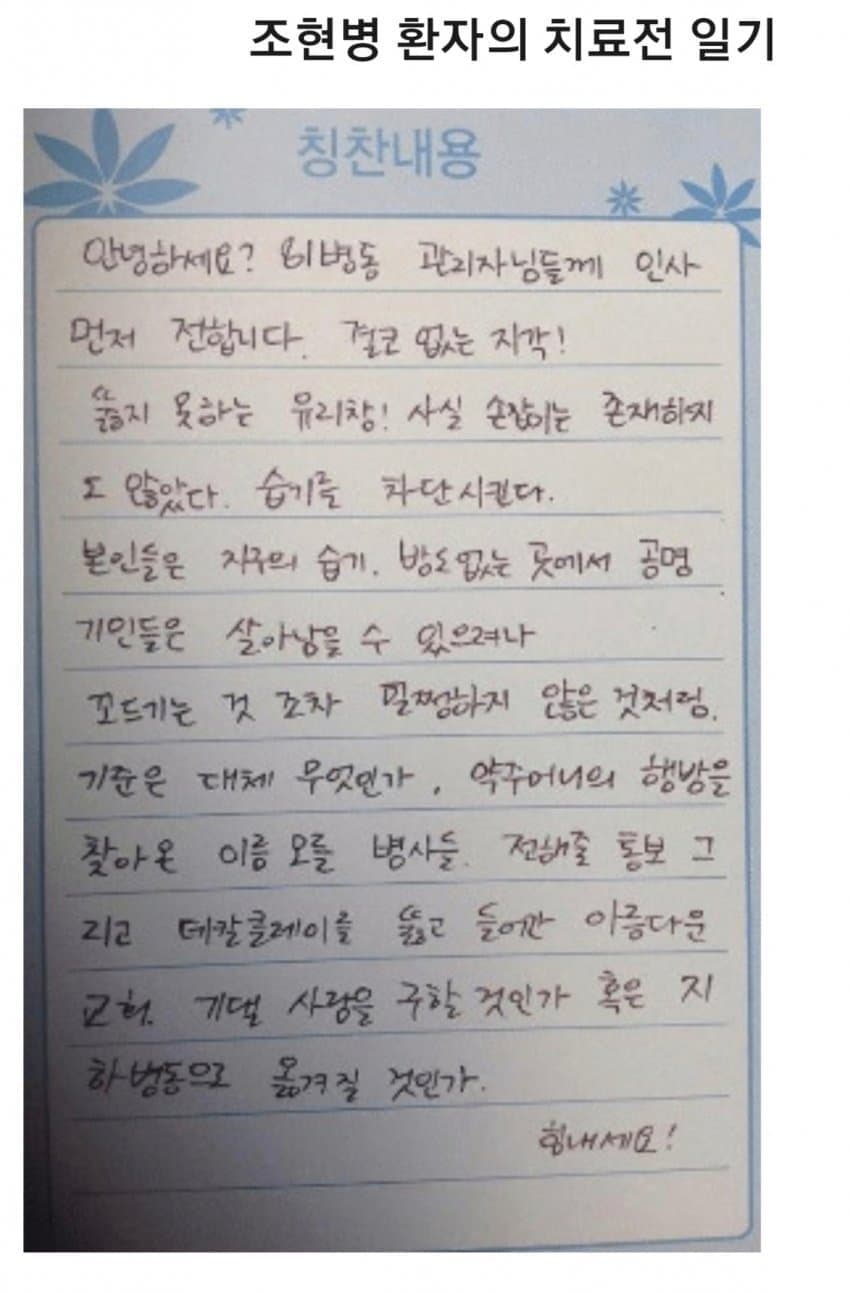 조현병 환자의 치료전 일기
칭찬내용
안녕하세요? 81병동 관리자님들께 인사
먼저 전합니다. 결코 없는 지각!
뚫지 못하는 유리창! 사실 손잡이는 존재하지
도 않았다. 습기를 차단시킨다.
본인들은 지구의 습기. 방도없는 곳에서 공명
기인들은 살아남을 수 있으려나
꼬드기는 것 조차 멀쩡하지 않은 것처럼.
기준은 대체 무엇인가, 약주머니의 행방을
찾아온 이름 모를 병사들. 전해줄 통보 그
리고 데칼클레이를 뚫고 들어간 아름다운
교회. 기댈 사랑을 구할 것인가 혹은 지
하병동으로 옮겨질 것인가.
힘내세요!